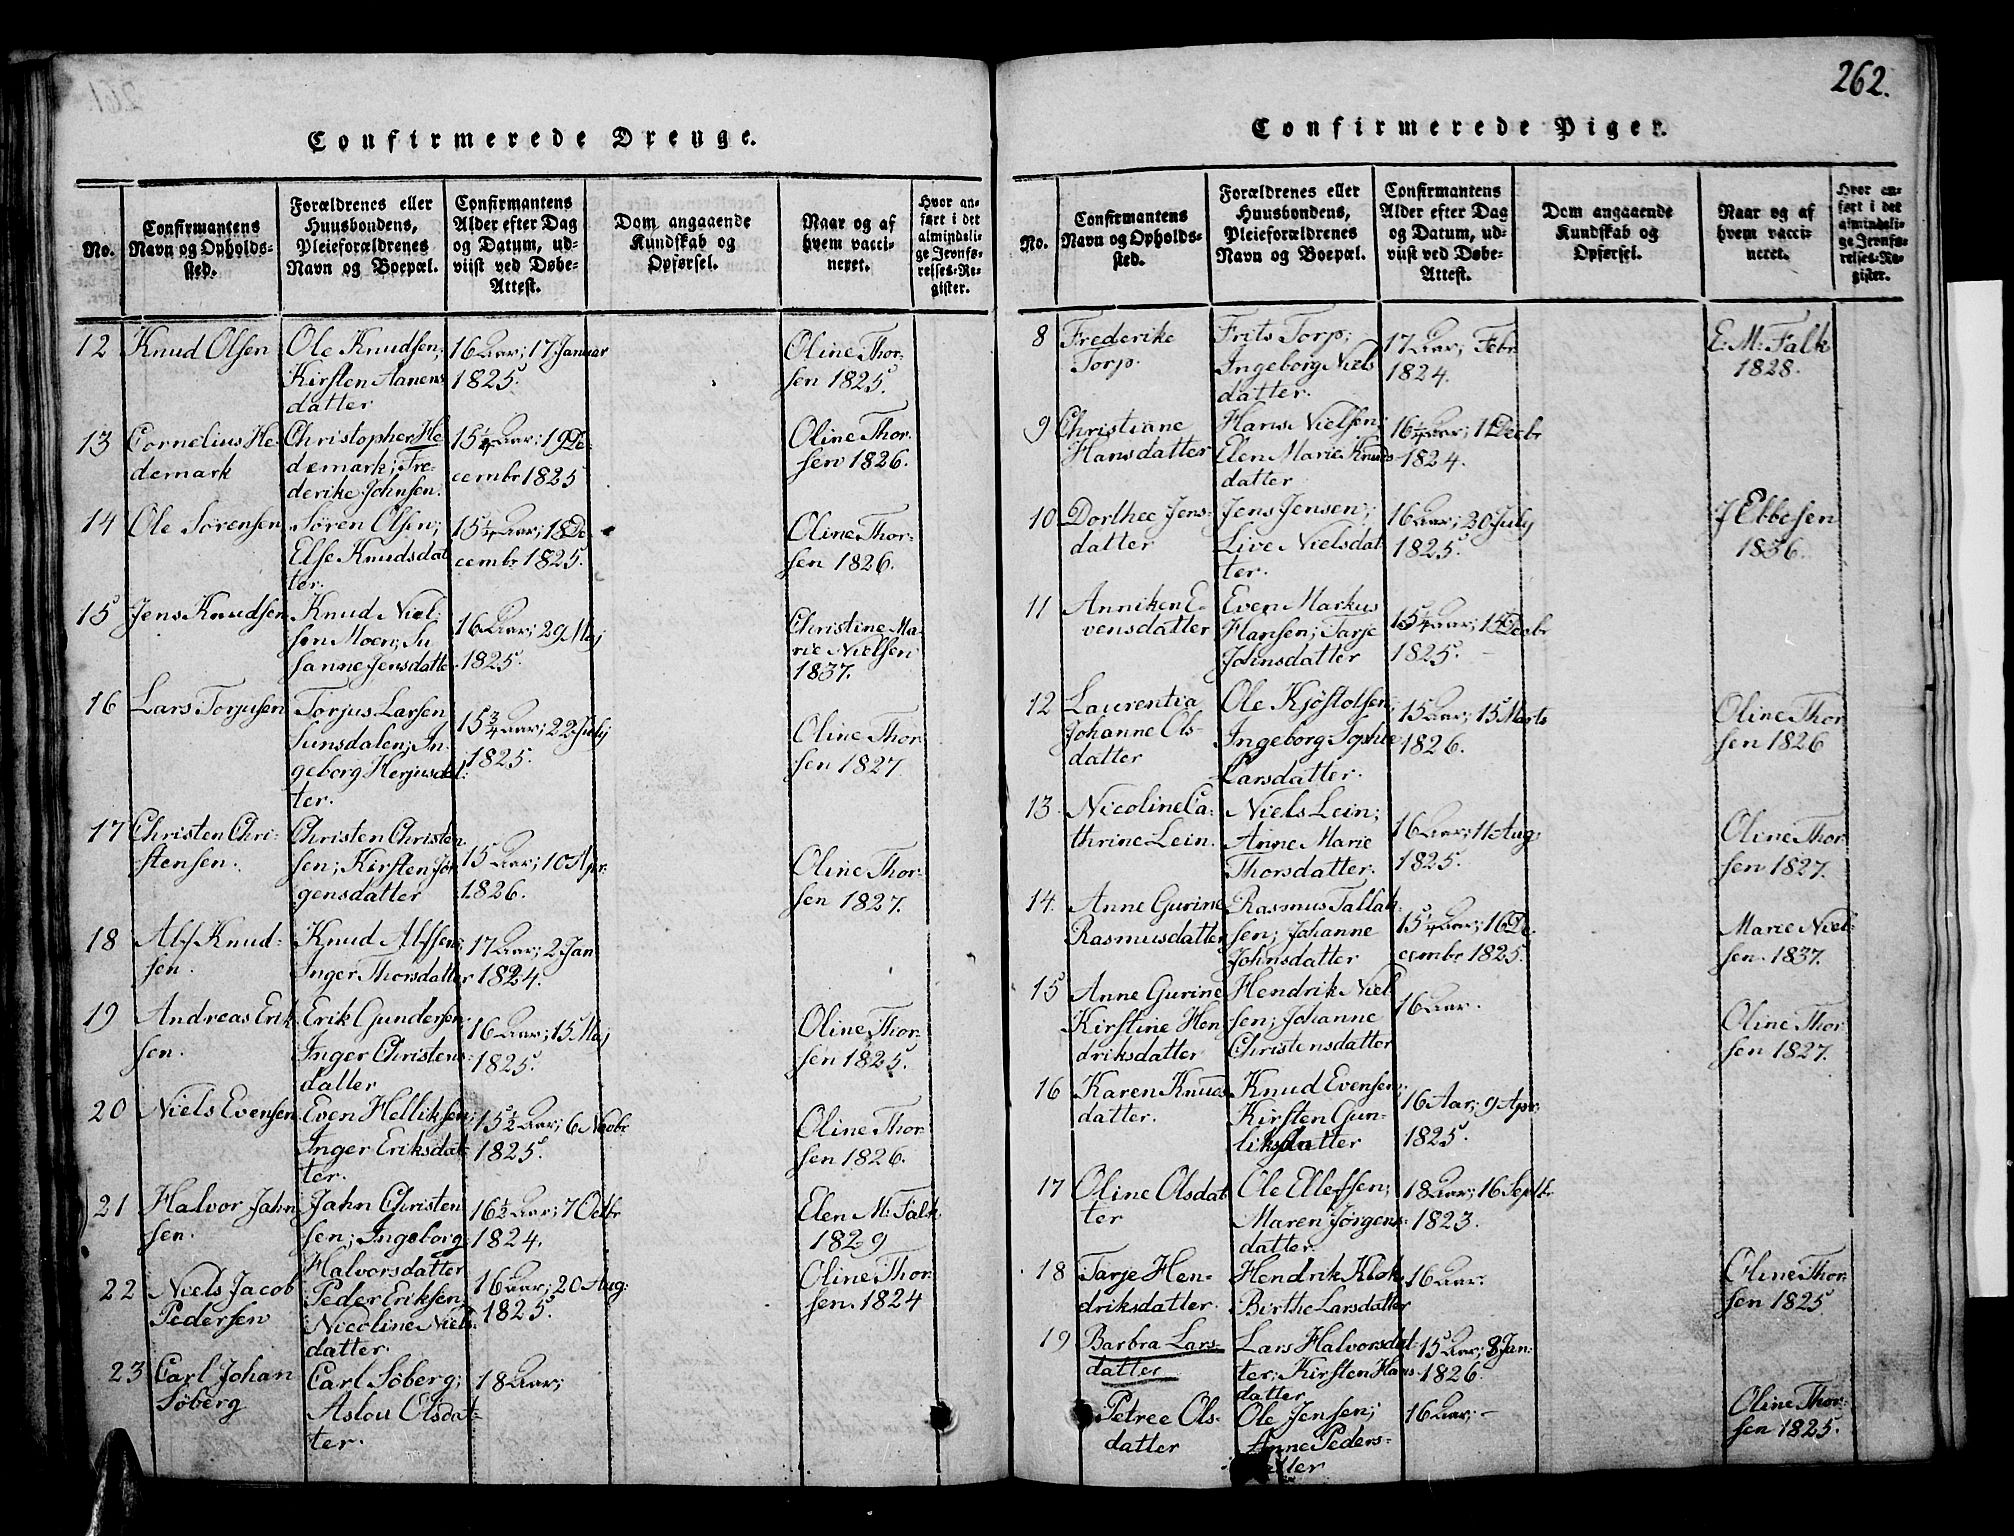 262.
Confirmerede Drenge.
No.
Confirmantens
Navn og Opholds-
sted.
Forældrenes eller
Huusbondens,
Pleieforældrenes
Navn og Boepæl.
Confirmantens
Alder efter Dag
og Datum, ud-
viist ved Døbe-
Attest.
Dom angaaende
Kundskab og
Opførsel.
Naar og af
hvem vacci-
neret.
Hvor an-
ført i det
almindeli-
ge Jevnfø-
relses-Re-
gister.
12 Knud Olsen
Ole Knudsen;
Kirsten Aanens
datter
16 Aar; 17 Januar
1825.
Oline Thor-
sen 1825.
13 Cornelius He-
demark
Christopher He
demark; Fre-
derike Johnsen.
15 1/4 Aar; 19 De-
cembr 1825
Oline Thor-
sen 1826.
14 Ole Sørensen
Søren Olsen;
Else Knudsdat
ter.
15 1/4 Aar; 18 De
cembr 1825.
Oline Thor-
sen 1826.
15 Jens Knudsen
Knud Niel-
sen Moen; Su
sanne Jensdatter
16 Aar; 29 Maj
1825.
Christine Ma-
rie Nielsen
1837.
16 Lars Torjusen
Torjus Larsen
Sunsdalen; In-
geborg Herjusdat-
ter.
15 3/4 Aar; 22 July
1825.
Oline Thor
sen 1827
17 Christen Chri-
stensen.
Christen Christen
sen; Kirsten Jør
gensdatter
15 Aar; 10 Apr.
1826.
Oline Thor-
sen 1827.
18 Alf Knud-
sen.
Knud Alfsen;
Inger Thorsdatter
17 Aar; 2 Jan
1824.
19 Andreas Erik
sen.
Erik Gundersen
Inger Christens-
datter
16 Aar; 15 Maj
1825.
Oline Thor-
sen 1825.
20 Niels Evensen
Even Helliksen;
Inger Eriksdat-
ter.
15 1/2 Aar; 6 Novbr
1825.
Oline Thor-
sen 1826.
21 Halvor Jahn
sen.
Jahn Christen
sen; Ingeborg
Halvorsdatter
16 1/2 Aar; 7 Octbr
1824.
Elen M. Falk
1829
22 Niels Jacob
Pedersen
Peder Eriksen;
Nicoline Niels-
datter.
16 Aar; 20 Aug:
1825.
Oline Thor-
sen. 1824
23 Carl Johan
Søberg
Carl Søberg;
Aslou Olsdat-
ter.
18 Aar;
Confirmerede Piger.
No.
Confirmantens
Navn og Opholds-
sted.
Forældrenes eller
Huusbondens,
Pleieforældrenes
Navn og Boepæl.
Confirmantens
Alder efter Dag
og Datum, ud-
viist ved Døbe-
Attest.
Dom angaaende
Kundskab og
Opførsel.
Naar og af
hvem vacci-
neret.
Hvor an-
ført i det
almindeli-
ge Jevnfø-
relses-Re-
gister.
8 Frederike
Torp.
Frits Torp;
Ingeborg Niels
datter.
17 Aar; Febr
1824.
E: M: Falk
1828.
9 Christiane
Hansdatter
Hans Nielsen;
Elen Marie Knuds
datter
16 1/4 Aar; 11 Decbr
1824.
10 Dorthee Jens-
datter
Jens Jensen;
Live Nielsdat
ter.
16 Aar; 20 July
1825.
J Ebbesen
1836.
11 Anniken E-
vensdatter
Even Markus
Hansen; Tarje
Johnsdatter
15 1/4 Aar; 14 Decbr
1825.
12 Laurentia
Johanne Ols-
datter
Ole Kjøstolsen;
Ingeborg
Larsdatter.
15 Aar; 15 Marts
1826.
Oline Thor
sen 1826
13 Nicoline Ca-
thrine Lein.
Niels Lein;
Anne Marie
Thorsdatter.
16 Aar; 11 Aug:
1825.
Oline Thor-
sen 1827.
14. Anne Gurine
Rasmusdatter
Rasmus Tallak-
sen; Johanne
Johnsdatter
15 1/4 Aar; 16 De-
cembr 1825.
Marie Niel-
sen. 1837.
15 Anne Gurine
Kirstine Hen
driksdatter
Hendrik Niel
sen; Johanne
Christensdatter
16 Aar.
Oline Thor
sen 1827.
16 Karen Knuds
datter.
Knud Evensen;
Kirsten Gun-
liksdatter
16 Aar; 9 Apr.
1825.
17 Oline Olsdat
ter
Ole Ellefsen;
Maren Jørgens-
datter.
18 Aar; 16 Septbr
1823.
18 Tarje Hen-
driksdatter.
Hendrik Klok
Birthe Larsdatter
16 Aar.
Oline Thor-
sen 1825
19 Barbra Lars-
datter
Lars Halvorsdat-
ter; Kirsten Hans
datter
15 Aar; 8 Jan:
1826.
Petree Ols-
datter
Ole Jensen;
Anne Peders-
datter
16 Aar; -
Oline Thor-
sen 1825.